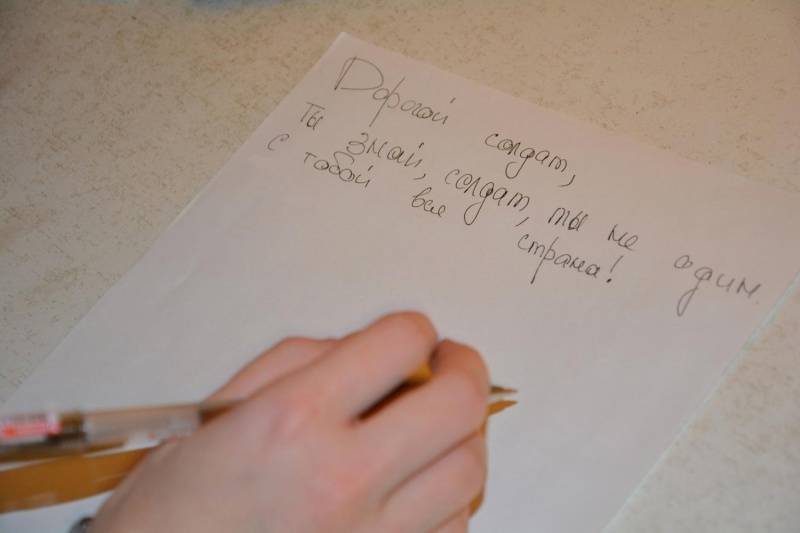 Дорогой солдат,
Ты знай, солдат, ты не один.
С тобой вся страна!